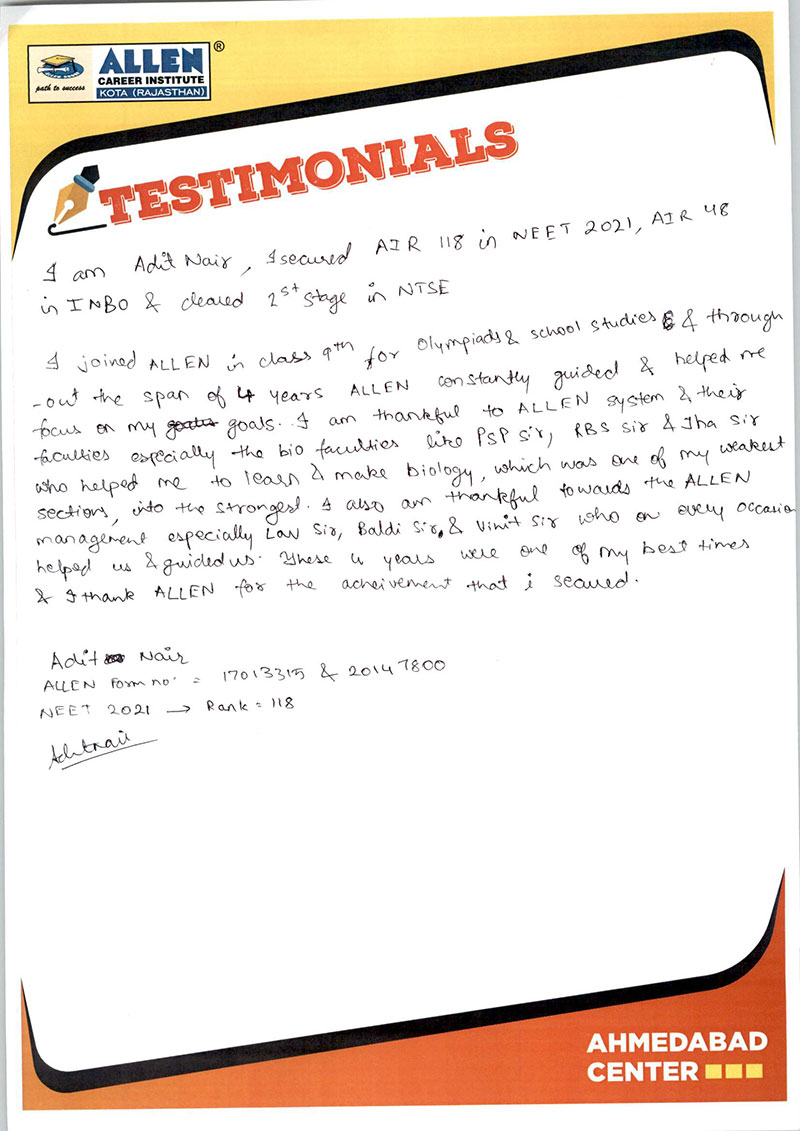 ALLEN ®
CAREER INSTITUTE
KOTA (RAJASTHAN)
path to success
TESTIMONIALS
I am Adit Nair, I secured AIR 118 in NEET 2021, AIR 48
in INBO & cleared 2st stage in NTSE
I joined ALLEN in class 9th for Olympiads & school studies & through
-out the span of 4 years ALLEN constantly guided & helped me
focus on my goals. I am thankful to ALLEN system & their
faculties especially the bio faculties like PSP sir, RBS sir & Jha sir
who helped me to learn & make biology, which was one of my weakest
sections, into the strongest. I also am thankful towards the ALLEN
management especially Lav Sir, Baldi Sir, & Vinit Sir who on every occasion
helped us & guided us. These 4 years were one of my best times
& I thank ALLEN for the acheivement that i secured.
Adit Nair
ALLEN Form no. = 17013315 & 20147800
NEET 2021 → Rank = 118
Aditnair
AHMEDABAD
CENTER